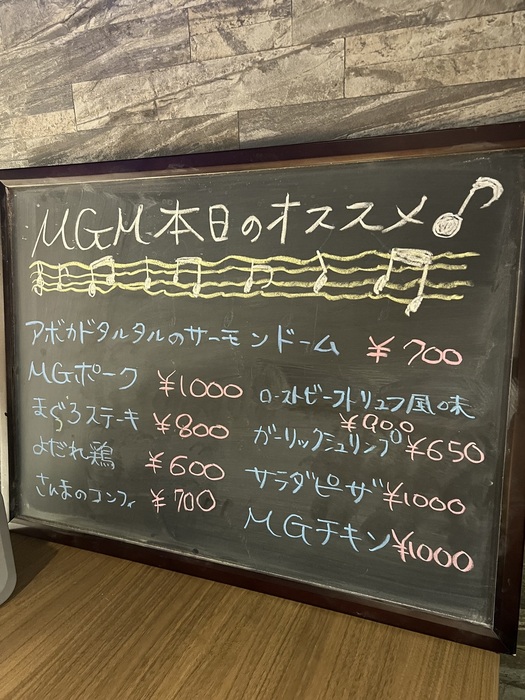 MGM本日のオススメ
アボカドタルタルのサーモンドーム ¥700
MGポーク ¥1000
まぐろステーキ ¥800
よだれ鶏 ¥600
さんまのコンフィ ¥700
ローストビーフトリュフ風味
¥900
ガーリックシュリンプ ¥650
サラダピーザ ¥1000
MGチキン ¥1000